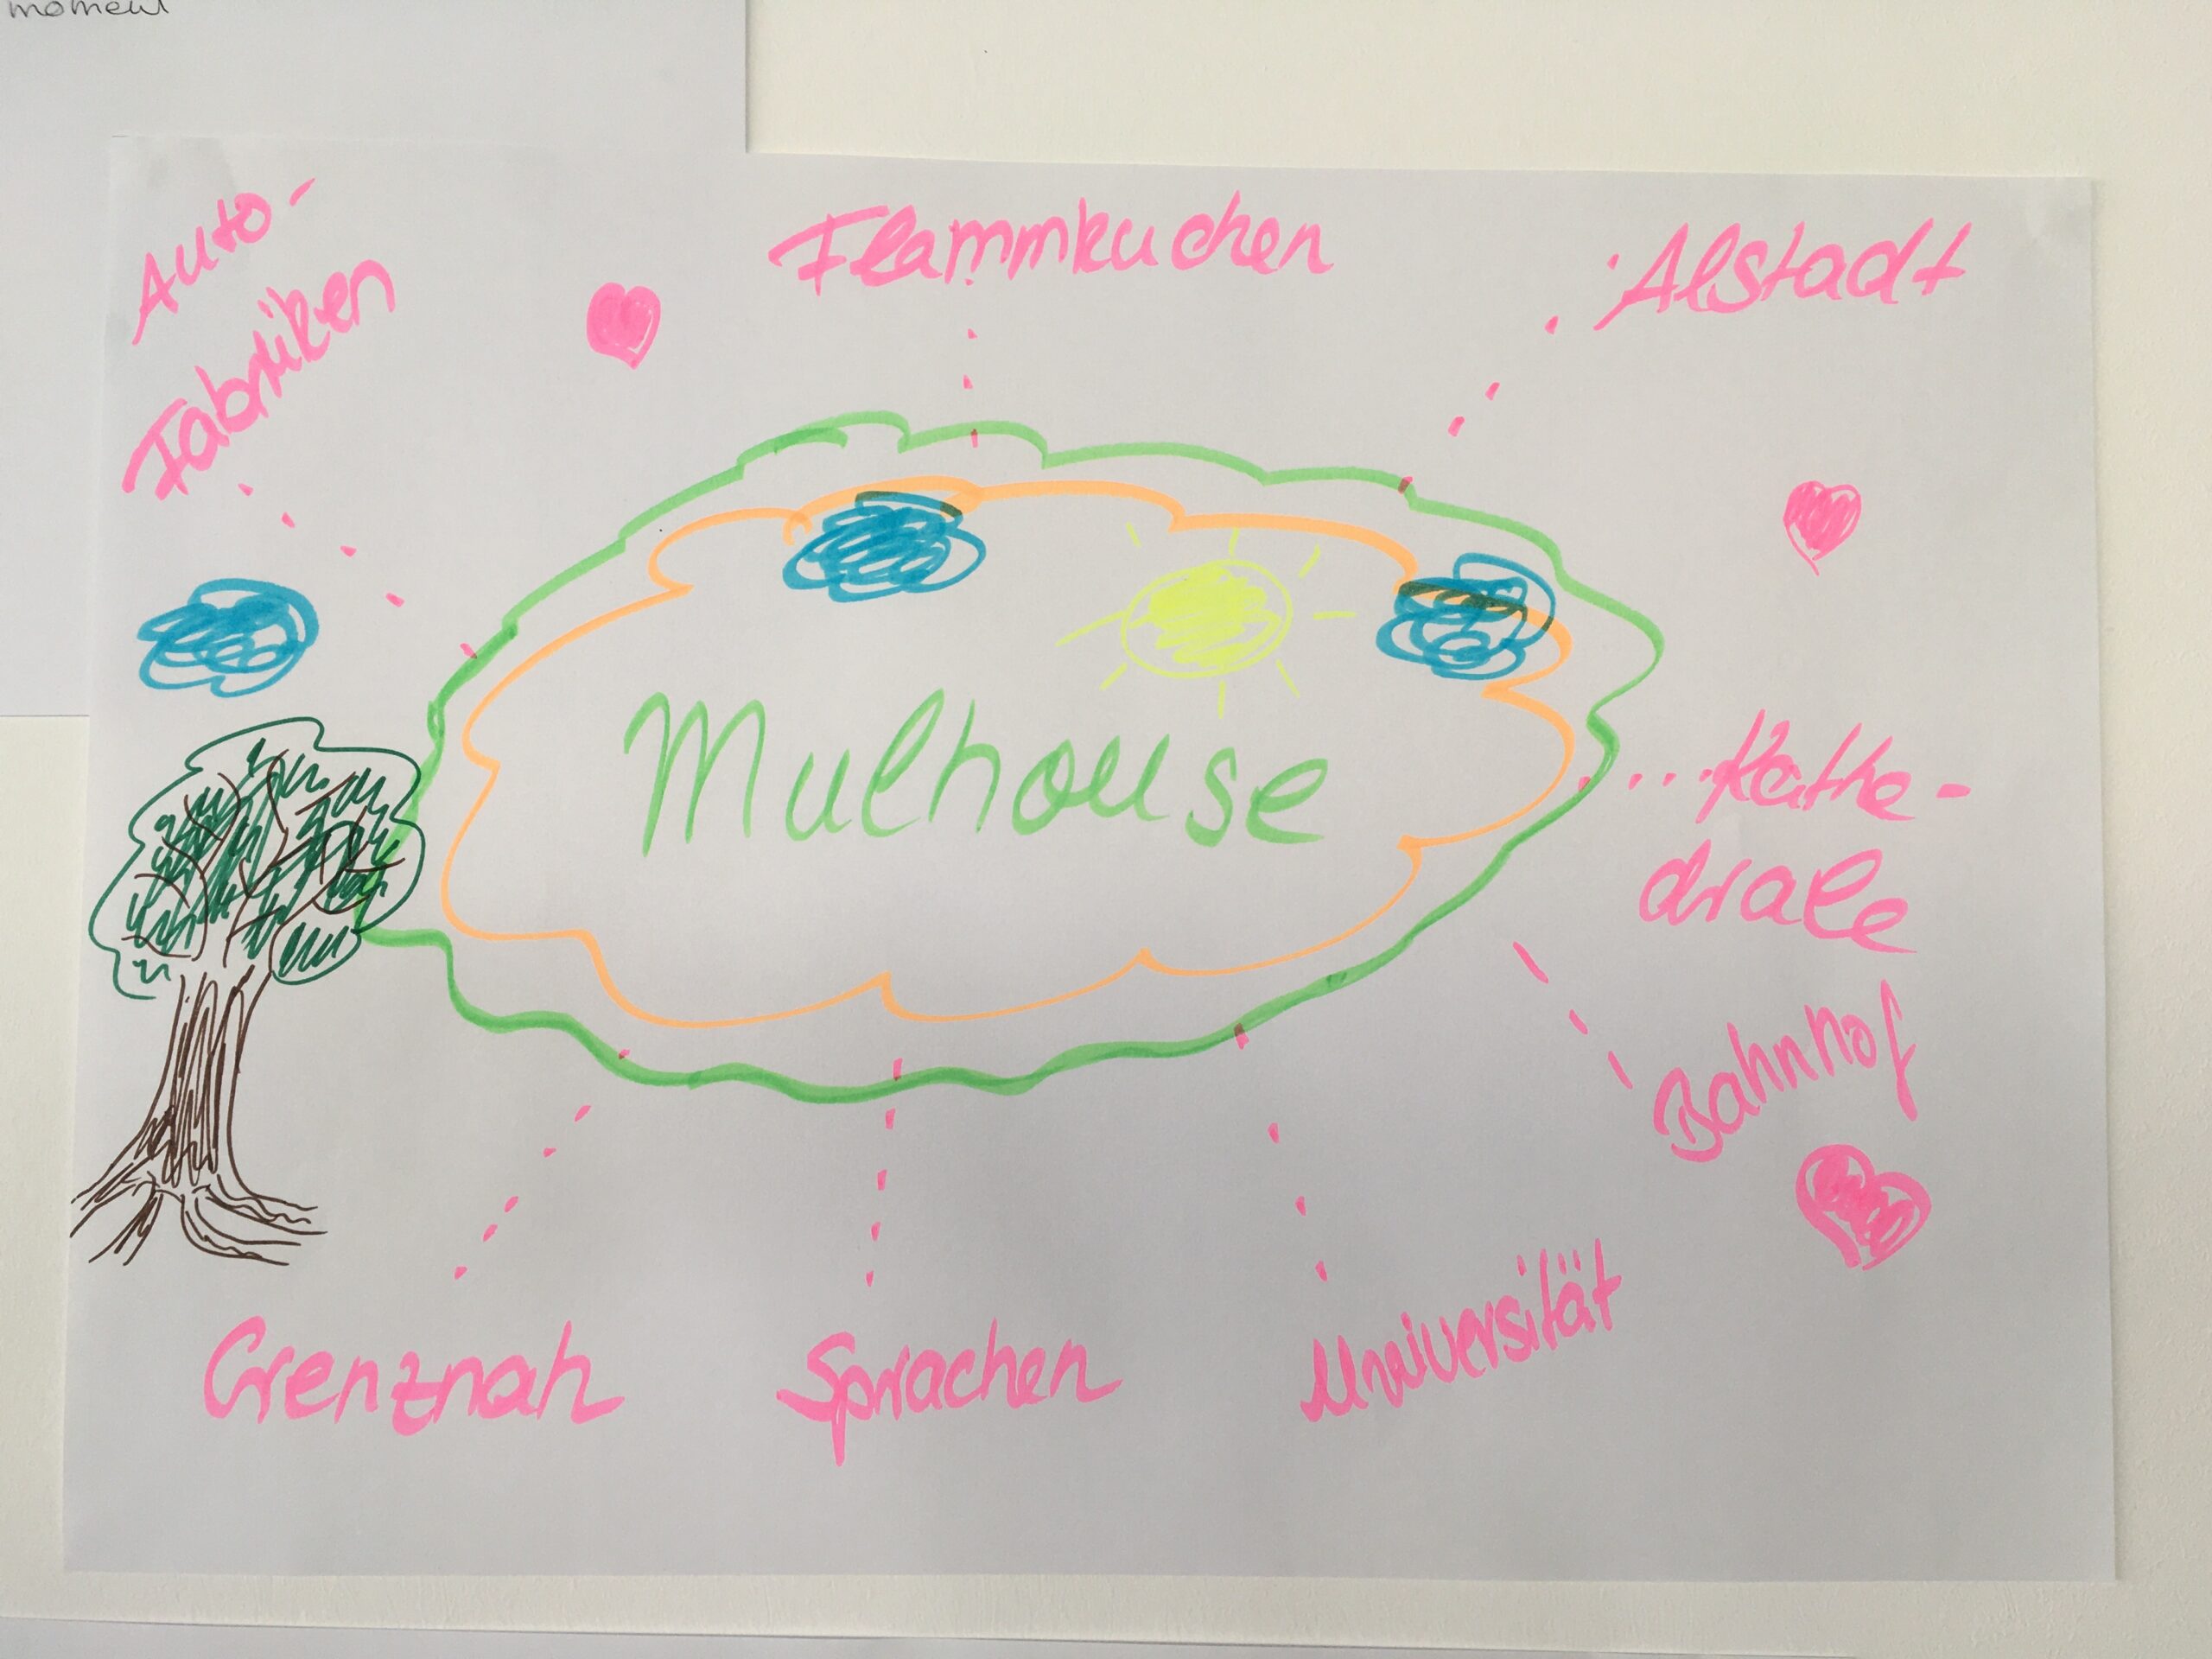 moment
Auto-
Fabriken
Flammkuchen
Alstadt
Mulhouse
Kathe-
drale
Bahnhof
Grenznah
Sprachen
Universität